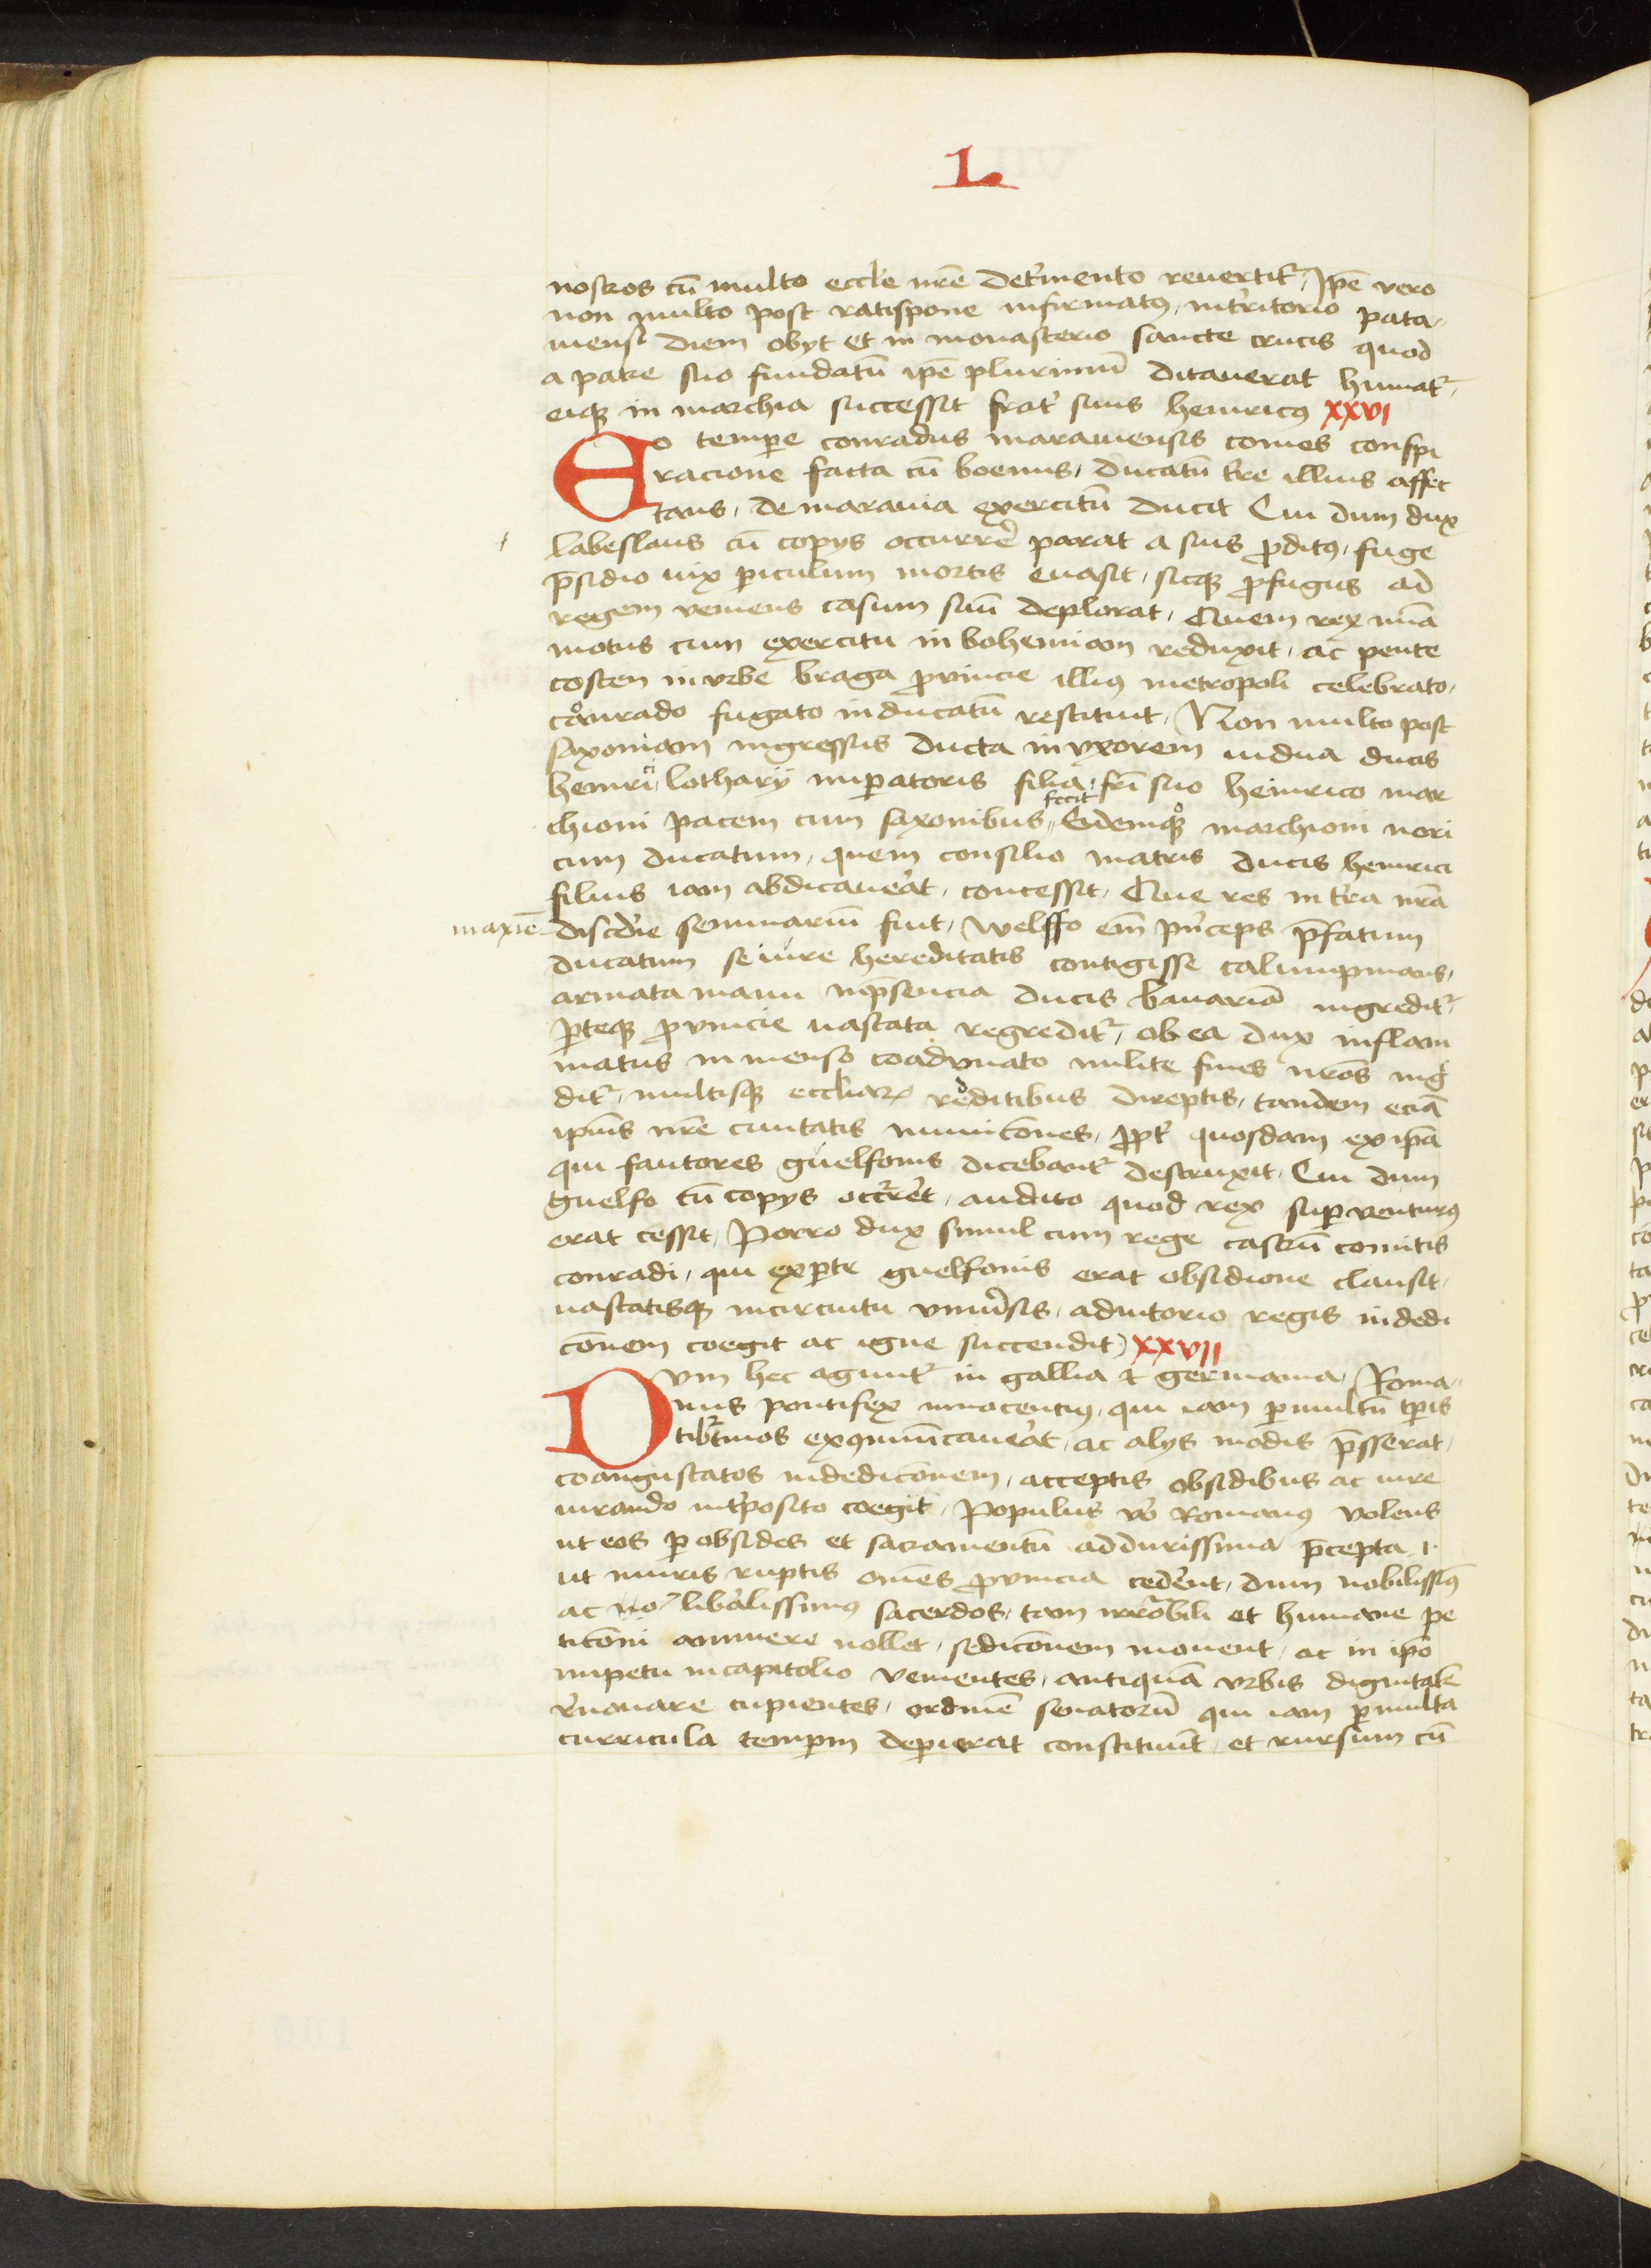 L
nostros cū multo eccl̄e nr̄e det̓mento reuertit᷑, Ip̄e vero
non multo post ratispone infirmatꝯ, int̓ritorio pata-
uiensi diem obyt et in monasterio sancte crucis quod
a patre suo fundatū ip̄e plurimū ditauerat humat᷑,
eiqꝫ in marchia successit frat̓ suus heinricꝯ xxvi
Eo tempe̱ conradus marauiensis comes conspi
racione facta cū boemis, ducatū tr̄e illius affec
tans, de marauia exercitū ducit Cui dum dux
labeslaus cū copys occurrer̓ parat a suis ꝓditꝯ, fuge
p̄sidio uix ꝑiculum mortis euasit, sicqꝫ ꝓfugus ad
regem veniens casum suū deplorat, Quem rex mīa
motus cum exercitu in bohemiam reduxit, ac pente
costen in vrbe braga ꝓuincie illiꝯ metropoli celebrato,
conrado fugato in ducatū restituit, Non multo post
saxoniam ingressus ducta in vxorem uidua ducis
heinrici lothary imꝑatoris filia, fr̄i suo heinrico mar
chioni pacem cum saxonibus fecit, Eidemqꝫ marchioni nori
cum ducatum, quem consilio matris ducis heinrici
filius iam abdicauer̓at, concessit, Que res in tr̄a nr̄a
maxīe discor̓die seminariū fuit, welffo em̄ pn̓ceps p̄fatum
ducatum se iure hereditatis contigisse calumpnians,
armata manu inp̄sencia ducis bauariā ingredit᷑,
ꝑteqꝫ ꝓuincie uastata regredit᷑, ob ea dux inflam
matus inmenso coadunato milite fines nr̄os ingr̓
dit᷑, multisqꝫ eccl̓iaꝝ redditibus direptis, tandem eciā
ip̄ius nr̄e ciuitatis municōnes, ꝓpt̓ quosdam ex ip̄a
qui fautores guelfonis dicebant᷑ destruxit, Cui dum
guelfo cū copys occrr̓et, audito quod rex suꝑventurꝯ
erat cessit, Porro dux simul cum rege castrū comitis
conradi, qui exꝑte guelfonis erat obsidione clausit,
uastatisqꝫ incircuitu vniuer̓sis, adiutorio regis indedi
cōnem coegit ac igne succendit) xxvii
Dvm hec agunt᷑ in gallia et germania, Roma-
nus pontifex innocenciꝯ, qui iam ꝑmultū tp̄is
tibrtinos exꝯmunīcauer̓at, ac alys modis p̄sserat,
coangustatos indedicōnem, acceptis obsidibus ac iure
iurando int̓posito coegit, Populus vo̓ Romanꝯ volens
ut eos ꝑ obsides et sacramentū addurissima p̄cepta .i.
ut muris ruptis omēs ꝓuincia ceder̓ent, dum nobilissimꝯ
ac liber̓alissimꝯ sacerdos, tam irrōabili et humane pe
ticōni annuere nollet, sedicōnem mouent, ac in ip̄o
impetu incapitolio venientes, antiquā vrbis dignitatē
r̓nouare cupientes, ordinē senatorū qui iam ꝑmulta
curricula tempꝝ deꝑierat constituūt et rursum cū